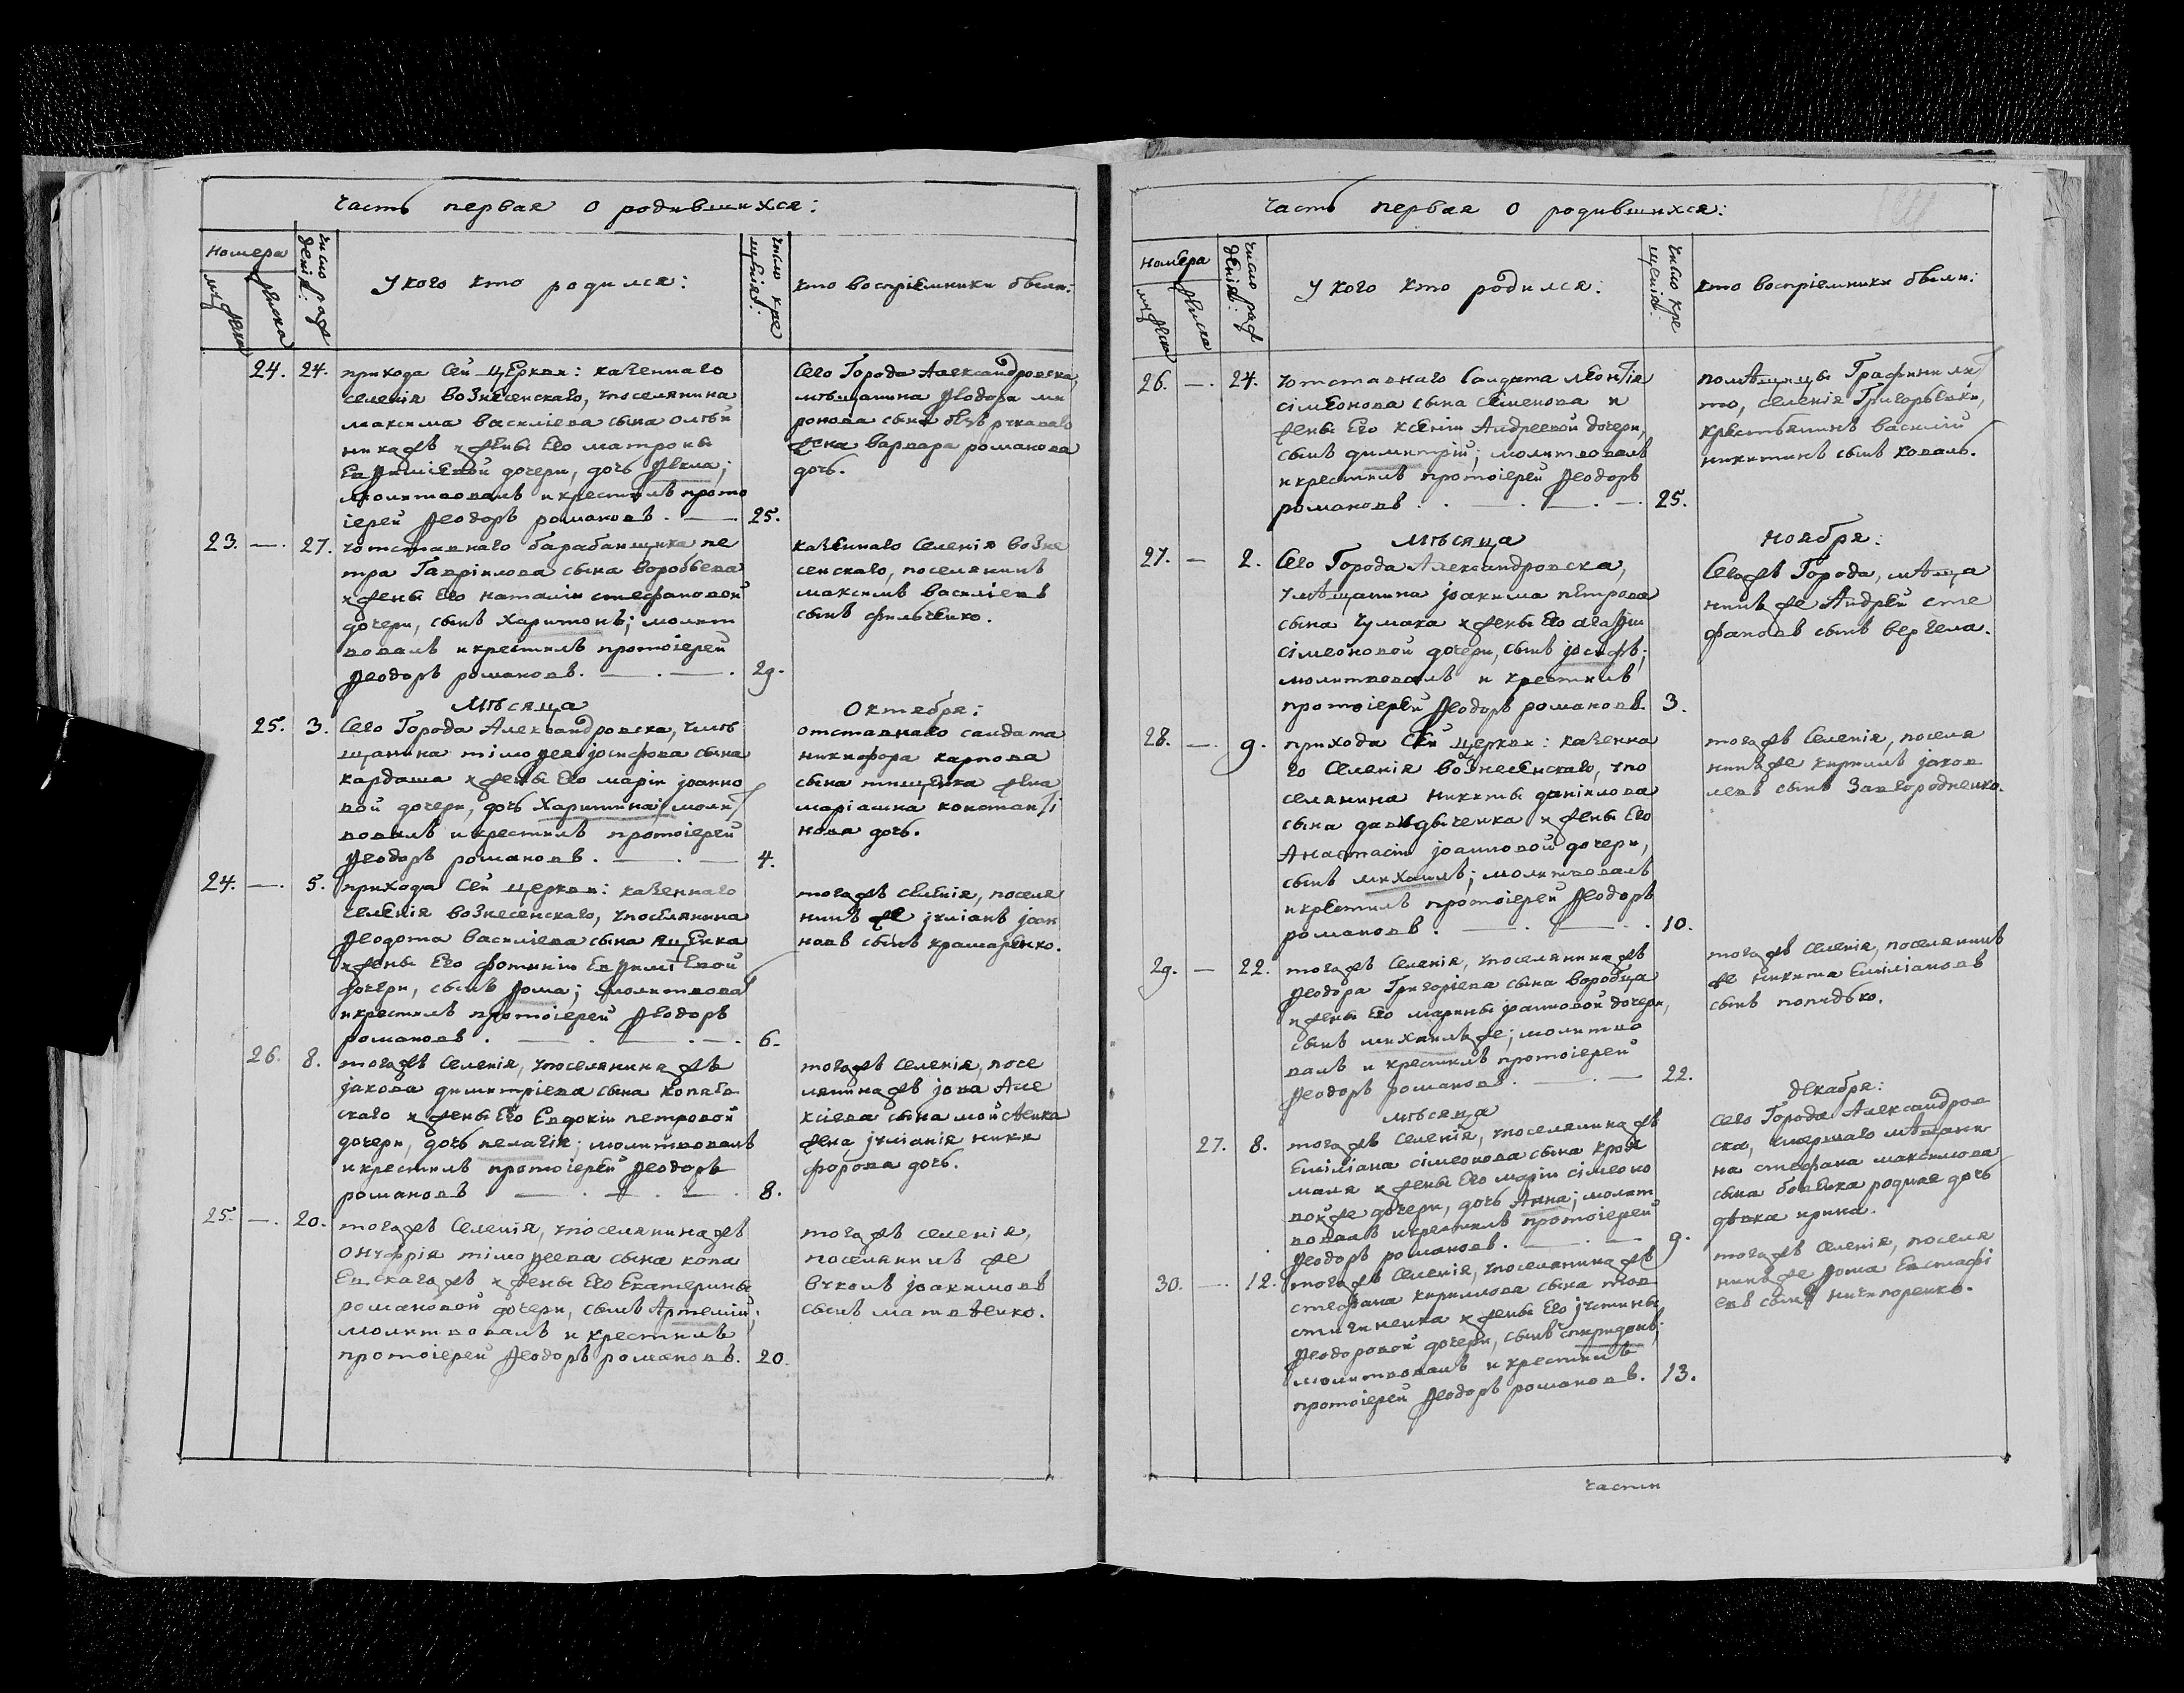 Часть первая о родившихся:
Номера
мужеска
женска
число рож
денія:
У кого кто родился:
число кре
щенія:
кто воспріемники были:
24. 24. прихода сей церкви: казеннаго
селенія вознесенскаго, упоселянина
максима василіева сына олѣй
никажъ ижены его матроны
Евѳиміевой дочери, дочь Ѳекла;
молитвовалъ икрестилъ прото
іерей Ѳеодоръ романовъ. — 25.
Сего Города Александровска,
мѣщанина Ѳеодора ми
ронова сына
жена варвара романова
дочь.
23. — 27. уотставнаго барабанщика пе
тра Гавріилова сына воробьева
ижены его наталіи стефановой
дочери, сынъ харитонъ; молит
вовалъ икрестилъ протоіерей
Ѳеодоръ романовъ. — . — . 29.
казеннаго селенія возне
сенскаго, поселянинъ
максимъ василіевъ
сынъ фильченко.
мѣсяца Октября:
25. 3. Сего Города Александровска, умѣ
щанина тімоѳея іосифова сына
кардаша ижены его маріи іоанно
вой дочери, дочь харитина; молит
вовалъ икрестилъ протоіерей
Ѳеодоръ романовъ. — . — 4.
отставнаго салдата
никифора карпова
сына тищенка жена
маріанна константі
нова дочь.
24. — 5. прихода сей церкви: казеннаго
селенія вознесенскаго, упоселянина
Ѳеодота василіева сына яценка
ижены его фотиніи Евѳиміевой
дочери, сынъ Ѳома; молитвовал
икрестилъ протоіерей Ѳеодоръ
романовъ. — . — . — . 6.
тогожъ селенія, поселя
нинъ же іуліанъ іоан
новъ сынъ крамаренко.
26. 8. тогожъ селенія, упоселянинажъ
іакова димитріева сына копаев
скаго ижены его Евдокіи петровой
дочери, дочь пелагія; молитвовалъ
икрестилъ протоіерей Ѳеодоръ
романовъ — . — . — . 8.
тогожъ селенія, посе
лянинажъ іова Але
ксіева сына мойсѣнка
жена іуліанія ники
форова дочь.
25. — . 20. тогожъ селенія, упоселянинажъ
онуфрія тімоѳеева сына копа
Евскагожъ ижены его Екатерины
романовой дочери, сынъ Артемій;
молитвовалъ и крестилъ
протоіерей Ѳеодоръ романовъ. 20.
тогожъ селенія,
поселянинъ же
вуколъ іоакимовъ
сынъ матвѣенко.
Часть первая о родившихся:
Номера
мужеска
женска
число рож
денія:
У кого кто родился:
число кре
щенія:
кто воспріемники были:
26. — . 24. уотставнаго салдата леонтія
сімеонова сына семенова и
жены его ксеніи Андреевой дочери,
сынъ димитрій; молитвовалъ
икрестилъ протоіерей Ѳеодоръ
романовъ. . — . — . — . 25.
помѣщицы Графини ли
то, селенія Григорьевки,
крестьянинъ василій
никитинъ сынъ коваль.
мѣсяца Ноября:
27. — 2. Сего Города Александровска,
умѣщанина іоакима петрова
сына чумака ижены его агаѳіи
сімеоновой дочери, сынъ іосифъ;
молитвовалъ и крестилъ
протоіерей Ѳеодоръ романовъ. 3.
Сегожъ Города, мѣща
нинъ же Андрей сте
фановъ сынъ вергела.
28. — . 9. прихода сей церкви: казенна
го селенія вознесенскаго, упо
селянина никиты даніилова
сына давыдыченка ижены его
Анастасіи іоанновой дочери,
сынъ михаилъ; молитвовалъ
икрестилъ протоіерей Ѳеодоръ
романовъ. — . — . . 10.
тогожъ селенія, поселя
нинъ же кириллъ іаков
левъ сынъ завгородненко.
29. — 22. тогожъ селенія, упоселянинажъ
Ѳеодора Григоріева сына воробца
ижены его марины іоанновой дочери,
сынъ михаилъ же; молитво
валъ и крестилъ протоіерей
Ѳеодоръ романовъ. — . — 22.
тогожъ селенія, поселянинъ
же никита Емиліановъ
сынъ попудько.
мѣсяца декабря:
27. 8. тогожъ селенія, упоселянинажъ
Емиліана сімеонова сына кров
маля ижены его маріи сімеоно
войже дочери, дочь Анна; молит
вовалъ икрестилъ протоіерей
Ѳеодоръ романовъ. — . — 9.
Сего Города Александров
ска, умершаго мѣщани
на стефана максимова
сына бовенка родная дочь
дѣвка ирина.
30. — . 12. тогожъ селенія, упоселянинажъ
стефана кириллова сына тов
стученка ижены его іустины
Ѳеодоровой дочери, сынъ спиридонъ;
молитвовалъ и крестилъ
протоіерей Ѳеодоръ романовъ. 13.
тогожъ селенія, поселя
нинъ же Ѳома Евстафі
евъ сынъ ничипоренко.
части